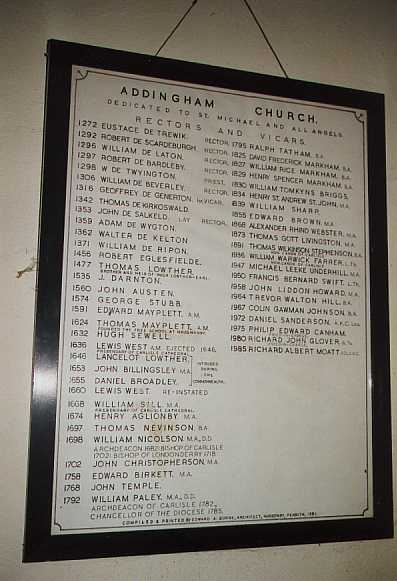 ADDINGHAM CHURCH.
DEDICATED TO ST. MICHAEL AND ALL ANGELS.
RECTORS AND VICARS.
1272 EUSTACE DE TREWIK. RECTOR,
1292 ROBERT DE SCARDEBURGH. RECTOR,
1296 WILLIAM DE LATON. RECTOR,
1297 ROBERT DE BARDLEBY. RECTOR,
1298 W DE TWYINGTON. PRIEST,
1306 WILLIAM DE BEVERLEY. RECTOR,
1316 GEOFFREY DE GENERTON. 1st VICAR,
1342 THOMAS DE KIRKOSWALD.
1353 JOHN DE SALKELD. LAY RECTOR,
1359 ADAM DE WYGTON.
1362 WALTER DE KELTON
1371 WILLIAM DE RIPON.
1456 ROBERT EGLESFIELDE.
1477 THOMAS LOWTHER.
1535 J. DARNTON.
1560 JOHN AUSTEN.
1574 GEORGE STUBB.
1591 EDWARD MAYPLETT, A.M.
1624 THOMAS MAYPLETT, A.M.
1632 HUGH SEWELL.
1636 LEWIS WEST A.M. EJECTED 1646.
PREBENDARY OF CARLISLE CATHEDRAL.
1646 LANCELOT LOWTHER.
1653 JOHN BILLINGSLEY M.A.
1655 DANIEL BROADLEY.
INTRUDED
DURING
THE
COMMONWEALTH.
1660 LEWIS WEST RE-INSTATED
1668 WILLIAM SILL, M.A.
PREBENDARY OF CARLISLE CATHEDRAL.
1674 HENRY AGLIONBY M.A.
1697 THOMAS NEVINSON. B.A.
1698 WILLIAM NICOLSON M.A., D.D.
ARCHDEACON 1682: BISHOP OF CARLISLE
1702: BISHOP OF LONDONDERRY 1718.
1702 JOHN CHRISTOPHERSON, M.A.
1758 EDWARD BIRKETT. M.A.
1768 JOHN TEMPLE.
1792 WILLIAM PALEY, M.A., D.D.
ARCHDEACON OF CARLISLE 1782,
CHANCELLOR OF THE DIOCESE 1785.
1795 RALPH TATHAM, B.A.
1825 DAVID FREDERICK MARKHAM, B.A.
1827 WILLIAM RICE MARKHAM, B.A.
1829 HENRY SPENCER MARKHAM, B.A.
1830 WILLIAM TOMKYNS BRIGGS,
1834 HENRY ST. ANDREW ST. JOHN, M.A.
1839 WILLIAM SHARP.
1855 EDWARD BROWN, M.A.
1868 ALEXANDER RHIND WEBSTER, M.A.
1873 THOMAS GOTT LIVINGSTON, M.A.
1891 THOMAS WILKINSON STEPHENSON, B.A.
WILLIAM WARWICK FARRER, L.Th.
1947 MICHAEL LEEKE UNDERHILL, M.A.
1950 FRANCIS BERNARD SWIFT, L.Th.
1958 JOHN LIDDON HOWARD, M.A.
1964 TREVOR WALTON HILL, B.A.
1967 COLIN GAWMAN JOHNSON, B.A.
1972 DANIEL SANDERSON,
1975 PHILIP EDWARD CANHAM.
1980 RICHARD JOHN GLOVER, B.Th.
1985 RICHARD ALBERT MOATT
COMPILED & PRINTED BY ARCHITECT, PENRITH,